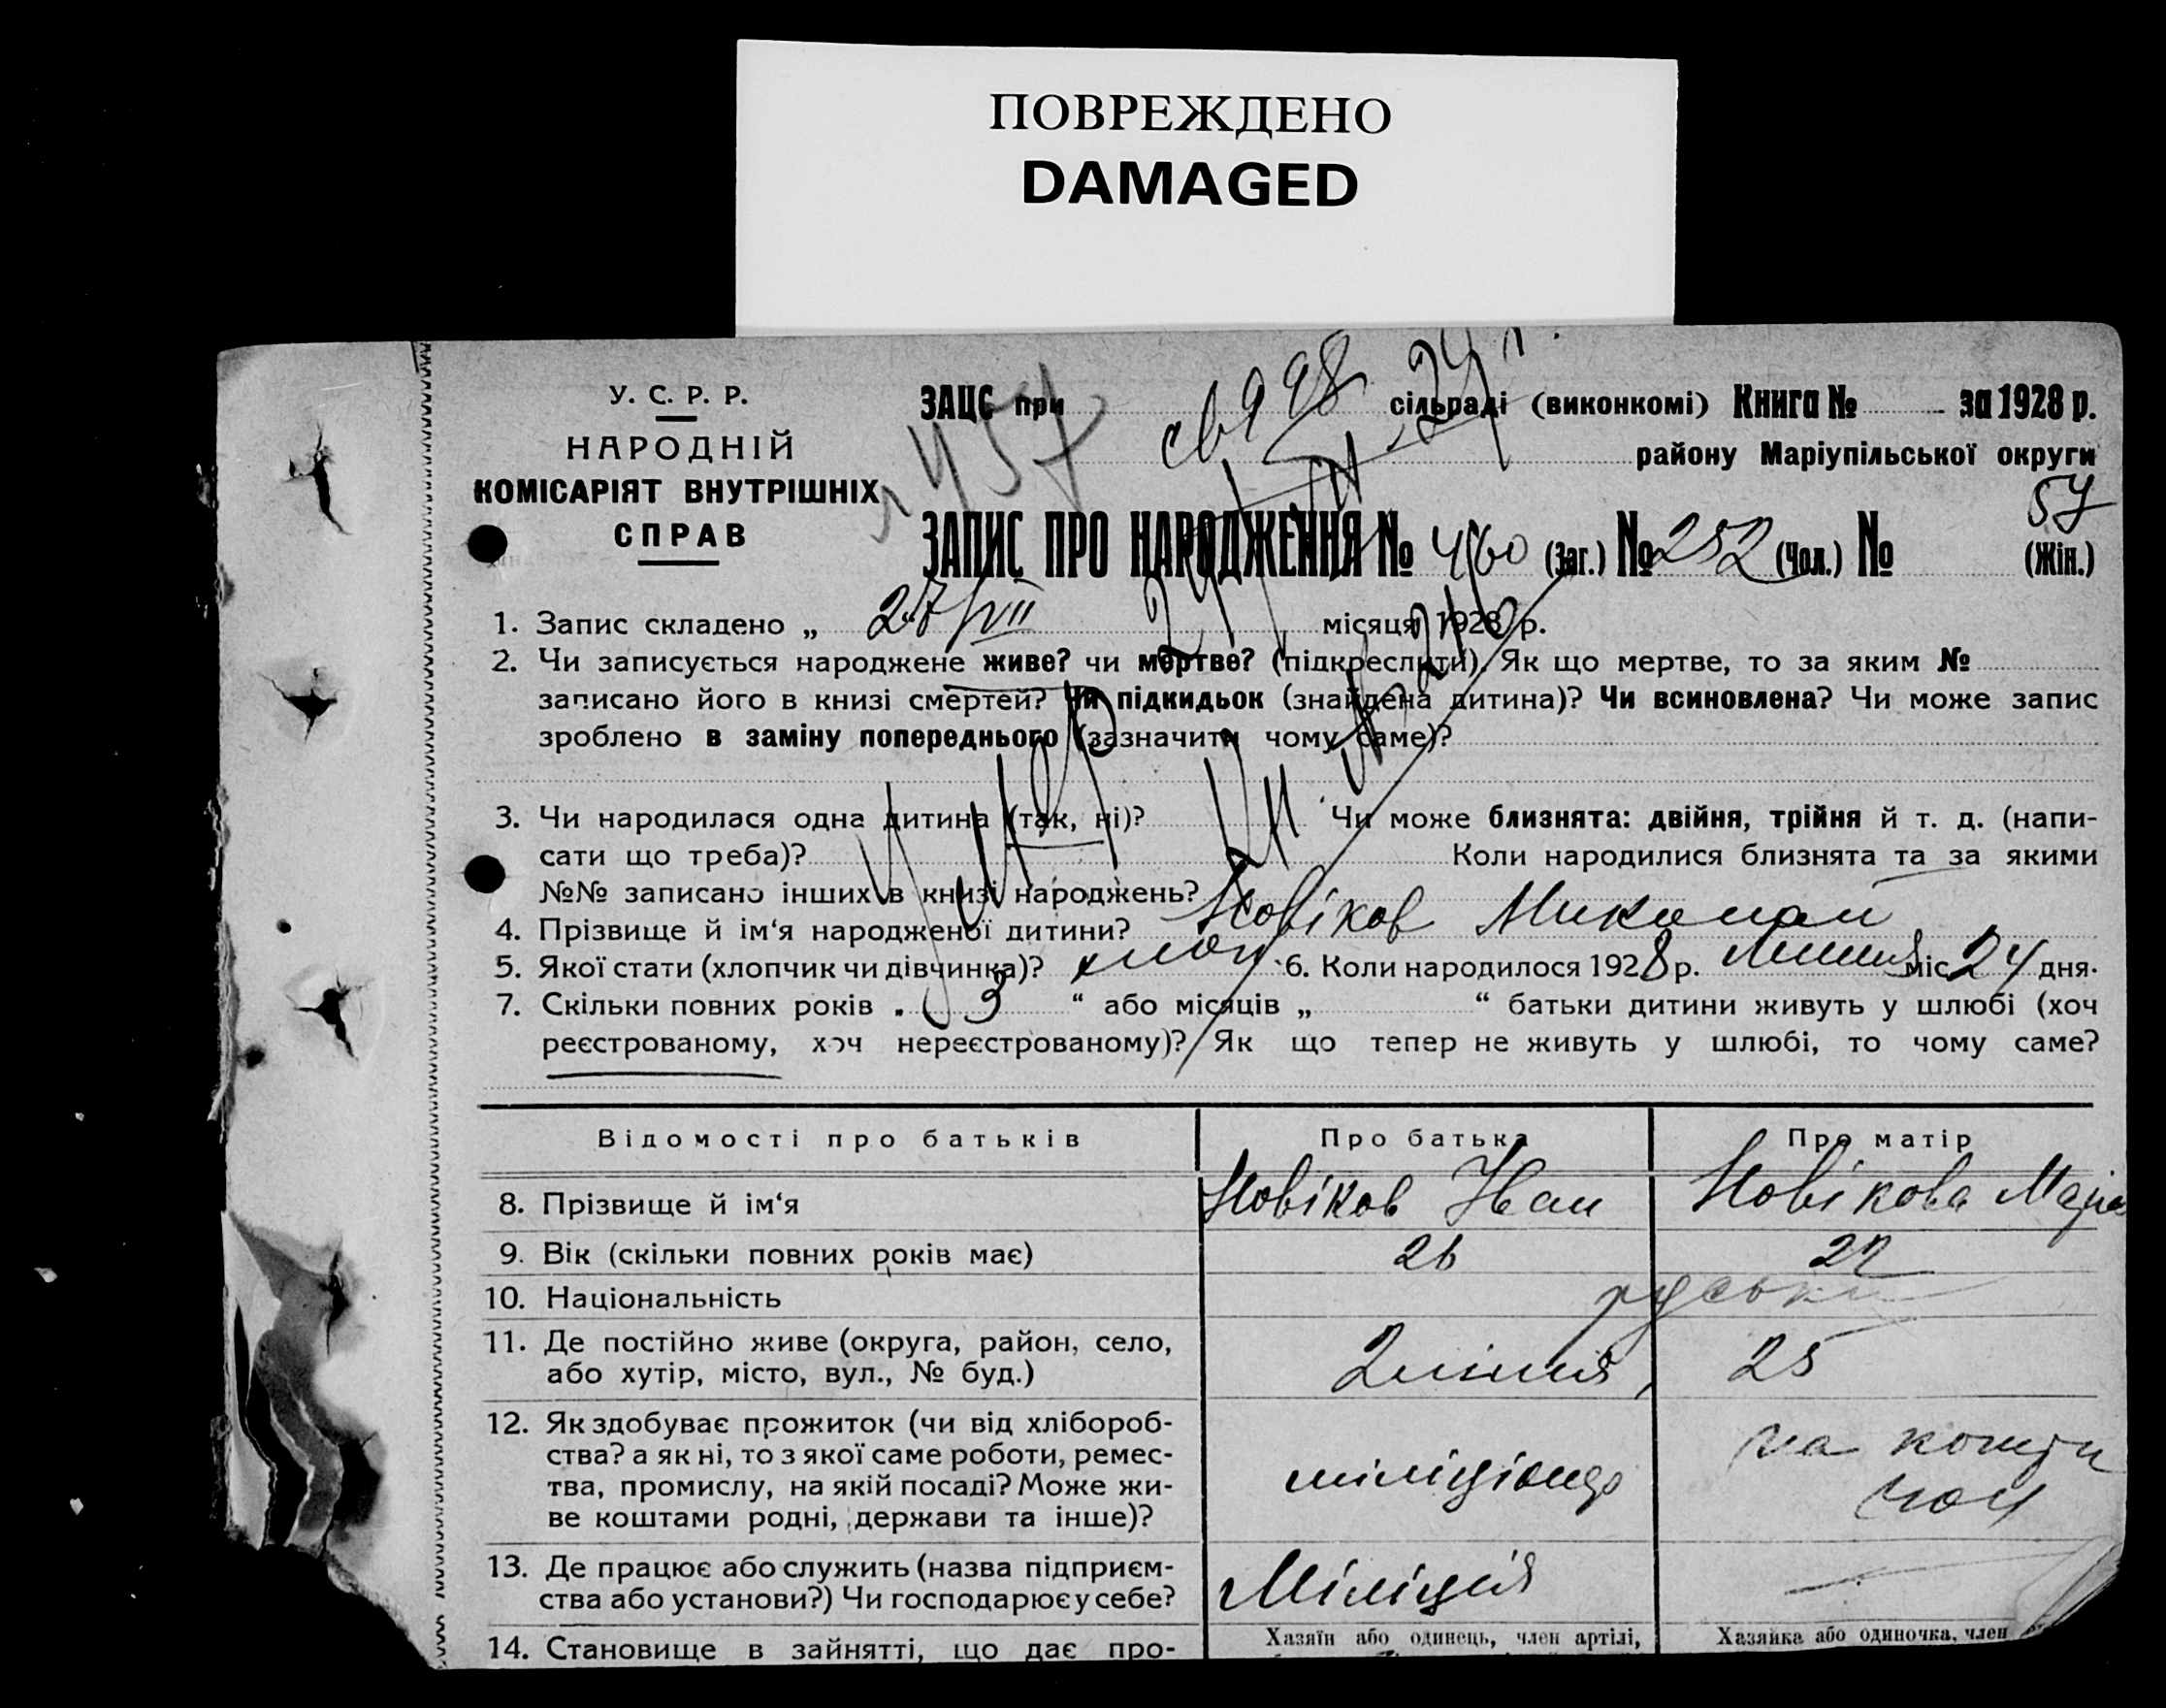 ПОВРЕЖДЕНО
DAMAGED
У. С. Р. Р.
НАРОДНІЙ
КОМІСАРІЯТ ВНУТРІШНІХ
СПРАВ
457
ЗАЦС при сільраді (виконкомі) Книга № за 1928 р.
району Маріупільської округи
57
ЗАПИС ПРО НАРОДЖЕННЯ № 460 (Заг.) № 252 (Чол.) № (Жін.)
1. Запис складено „ 27/VII місяця 1928 р.
2. Чи записується народжене живе? чи мертве? (підкреслити). Як що мертве, то за яким №
записано його в книзі смертей? Чи підкидьок (знайдена дитина)? Чи всиновлена? Чи може запис
зроблено в заміну попереднього (зазначити чому саме)?
3. Чи народилася одна дитина (так, ні)? Чи може близнята: двійня, трійня й т. д. (напи-
сати що треба)? Коли народилися близнята та за якими
№№ записано інших в книзі народжень?
4. Прізвище й ім‘я народженої дитини? Новіков Микалай
5. Якої стати (хлопчик чи дівчинка)? хлоп 6. Коли народилося 1928 р. Липня міс. 24 дня.
7. Скільки повних років „ 3 “ або місяців „ “ батьки дитини живуть у шлюбі (хоч
реєстрованому, хоч нереєстрованому)? Як що тепер не живуть у шлюбі, то чому саме?
Відомості про батьків Про батька Про матір
8. Прізвище й ім‘я Новіков Іван Новікова Марія
9. Вік (скільки повних років має) 26 22
10. Національність руські
11. Де постійно живе (округа, район, село, або хутір, місто, вул., № буд.) 2 лінія, 25
12. Як здобуває прожиток (чи від хлібороб-
ства? а як ні, то з якої саме роботи, ремес-
тва, промислу, на якій посаді? Може жи-
ве коштами родні, держави та інше)? міліціонер на кошти чол
13. Де працює або служить (назва підприєм-
ства або установи?) Чи господарює у себе? Міліція
14. Становище в зайнятті, що дає про- Хазяїн або одинець, член артілі, Хазяйка або одиночка, член